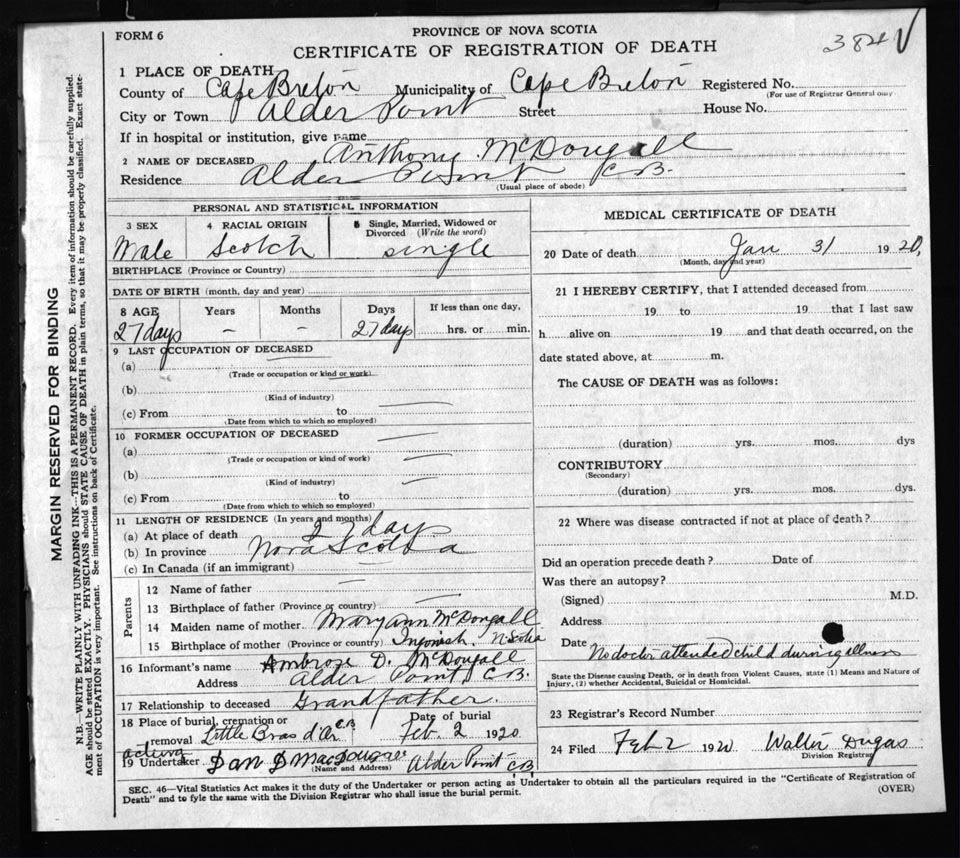 FORM 6
PROVINCE OF NOVA SCOTIA
CERTIFICATE OF REGISTRATION OF DEATH
384
1 PLACE OF DEATH
County of Cape Breton Municipality of Cape Breton Registered No.
(For use of Registrar General only
City or Town Alder Point Street House No.
If in hospital or institution, give name
2 NAME OF DECEASED Anthony McDougall
Residence Alder Point C.B.
(Usual place of abode)
PERSONAL AND STATISTICAL INFORMATION
3 SEX 4 RACIAL ORIGIN 5 Single, Married, Widowed or Divorced (Write the word)
Male Scotch single
BIRTHPLACE (Province or Country)
DATE OF BIRTH (month, day and year)
8 AGE Years Months Days If less than one day,
27 days – – 27 days hrs. or min.
9 LAST OCCUPATION OF DECEASED
(a)
(Trade or occupation or kind or work)
(b)
(Kind of industry)
(c) From to
(Date from which to which so employed)
10 FORMER OCCUPATION OF DECEASED
(a)
(Trade or occupation or kind of work)
(b)
(Kind of industry)
(c) From to
(Date from which to which so employed)
11 LENGTH OF RESIDENCE (In years and months)
(a) At place of death 27 days
(b) In province Nova Scotia
(c) In Canada (if an immigrant)
Parents
12 Name of father
13 Birthplace of father (Province or country)
14 Maiden name of mother Mary Ann McDougall
15 Birthplace of mother (Province or country) Ingonish N. Scotia
16 Informant's name Ambrose D. McDougall
Address Alder Point C.B.
17 Relationship to deceased Grandfather
18 Place of burial, cremation or Date of burial
removal Little Bras d'Or C.B. Feb. 2 1920
acting
19 Undertaker Dan D MacDougall Alder Point C.B.
(Name and Address)
MEDICAL CERTIFICATE OF DEATH
20 Date of death Jan 31 1920,
(Month, day and year)
21 I HEREBY CERTIFY, that I attended deceased from
19 to 19 that I last saw
h alive on 19 and that death occurred, on the
date stated above, at m.
The CAUSE OF DEATH was as follows:
(duration) yrs. mos. dys
CONTRIBUTORY
(Secondary)
(duration) yrs. mos. dys.
22 Where was disease contracted if not at place of death?
Did an operation precede death? Date of
Was there an autopsy?
(Signed) M.D.
Address
Date
No doctor attended child during illness
State the Disease causing Death, or in death from Violent Causes, state (1) Means and Nature of
Injury, (2) whether Accidental, Suicidal or Homicidal.
23 Registrar's Record Number
24 Filed Feb 2 1920 Walter Dugas
Division Registrar
SEC. 46—Vital Statistics Act makes it the duty of the Undertaker or person acting as Undertaker to obtain all the particulars required in the "Certificate of Registration of
Death" and to fyle the same with the Division Registrar who shall issue the burial permit.
(OVER)
MARGIN RESERVED FOR BINDING
N.B.—WRITE PLAINLY WITH UNFADING INK—THIS IS A PERMANENT RECORD. Every item of information should be carefully supplied.
AGE should be stated EXACTLY. PHYSICIANS should STATE CAUSE OF DEATH in plain terms, so that it may be properly classified. Exact state-
ment of OCCUPATION is very important. See instructions on back of Certificate.